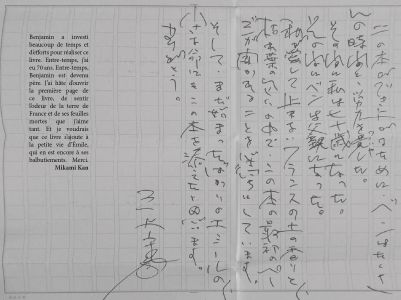 Benjamin a investi
beaucoup de temps et
d'efforts pour réaliser ce
livre. Entre-temps, j'ai
eu 70 ans. Entre-temps,
Benjamin est devenu
père. J'ai hâte d'ouvrir
la première page de
ce livre, de sentir
l'odeur de la terre de
France et de ses feuilles
mortes que j'aime
tant. Et je voudrais
que ce livre s'ajoute à
la petite vie d'Émile,
qui en est encore à ses
balbutiements. Merci.
Mikami Kan
この本ができ上がるためにベンはたくさ
んの時間と労力を費した。
その間に私は七十歳になった。
その間にベンは父親になった。
私が愛して止まないフランスの土の香りと
枯葉の匂い
この本の最初のペー
ジが
そして、まだ始まったばかりのエミールの
小さな命にこの本を